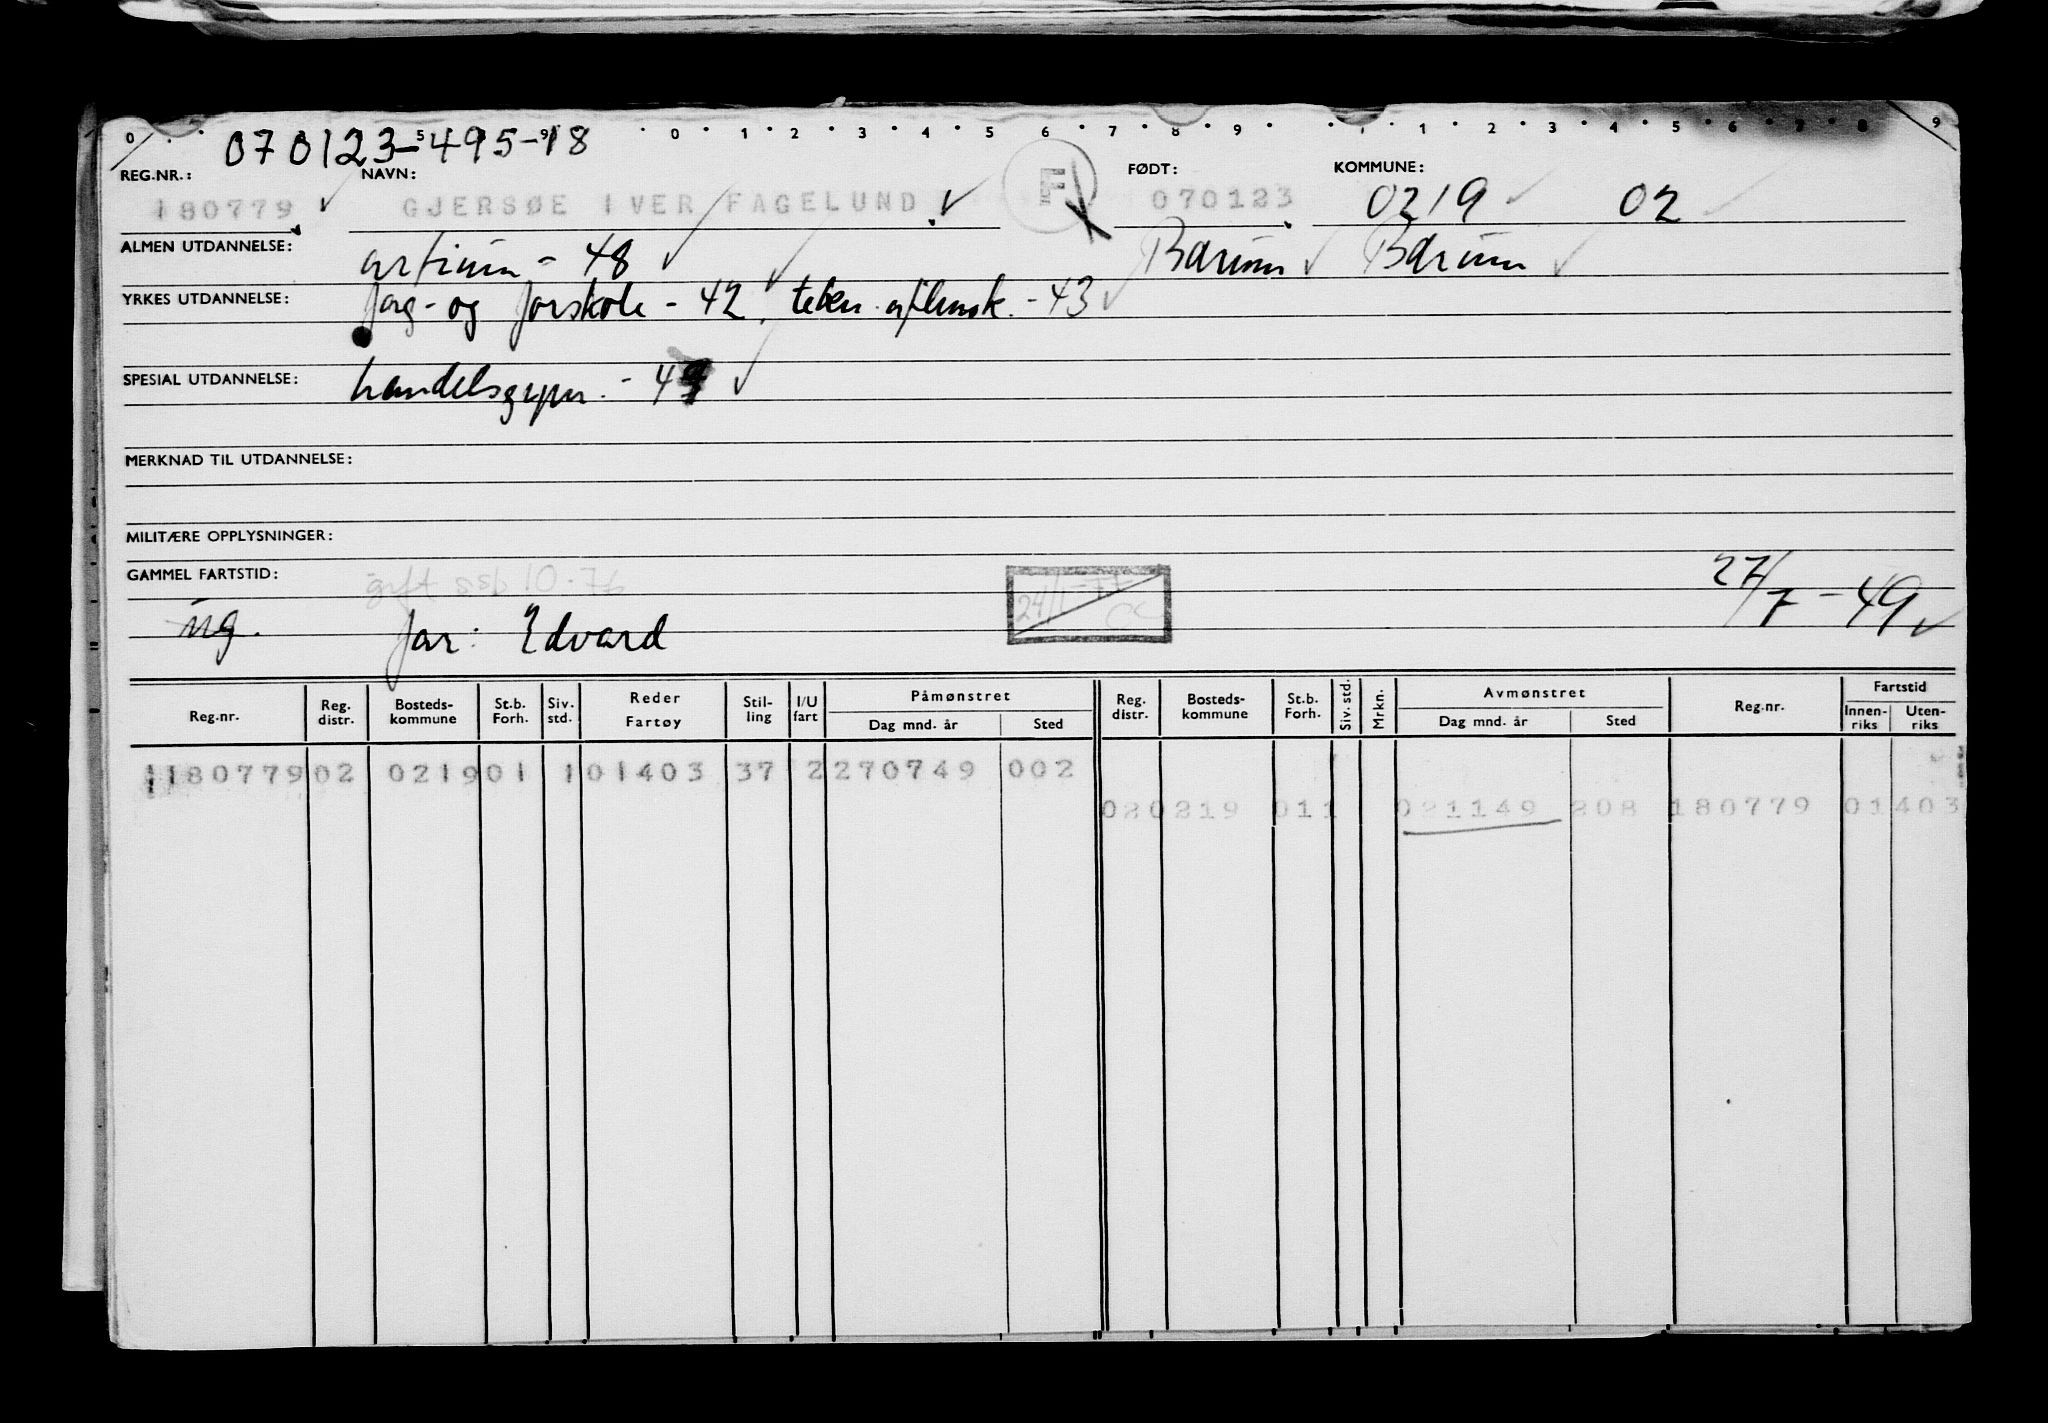 0 5 9 0 1 2 3 4 5 6 7 8 9 1 1 2 3 4 5 6 7 8 9
070123-495-18
REG.NR.: NAVN: FØDT: KOMMUNE:
180779 GJERSØE IVER FAGELUND F 070123 0219 02
ALMEN UTDANNELSE: artium - 48 Bærum Bærum
YRKES UTDANNELSE: - og forskole - 42, - 43
SPESIAL UTDANNELSE: handelsgymn. - 49
MERKNAD TIL UTDANNELSE:
MILITÆRE OPPLYSNINGER:
GAMMEL FARTSTID: gift ssb 10-76 24/1-77 27/7 - 49
ug. far: Edvard
Reg.nr. Reg. distr. Bosteds-kommune St.b. Forh. Siv. std. Reder Fartøy Stil-ling I/U fart Påmønstret Dag mnd. år Sted Reg. distr. Bosteds-kommune St.b. Forh. Siv. std. Mrkn. Avmønstret Dag mnd. år Sted Reg.nr. Fartstid Innen-riks Uten-riks
1180779 02 0219 01 1 01403 37 2 270749 002
020219 011 021149 208 180779 01403